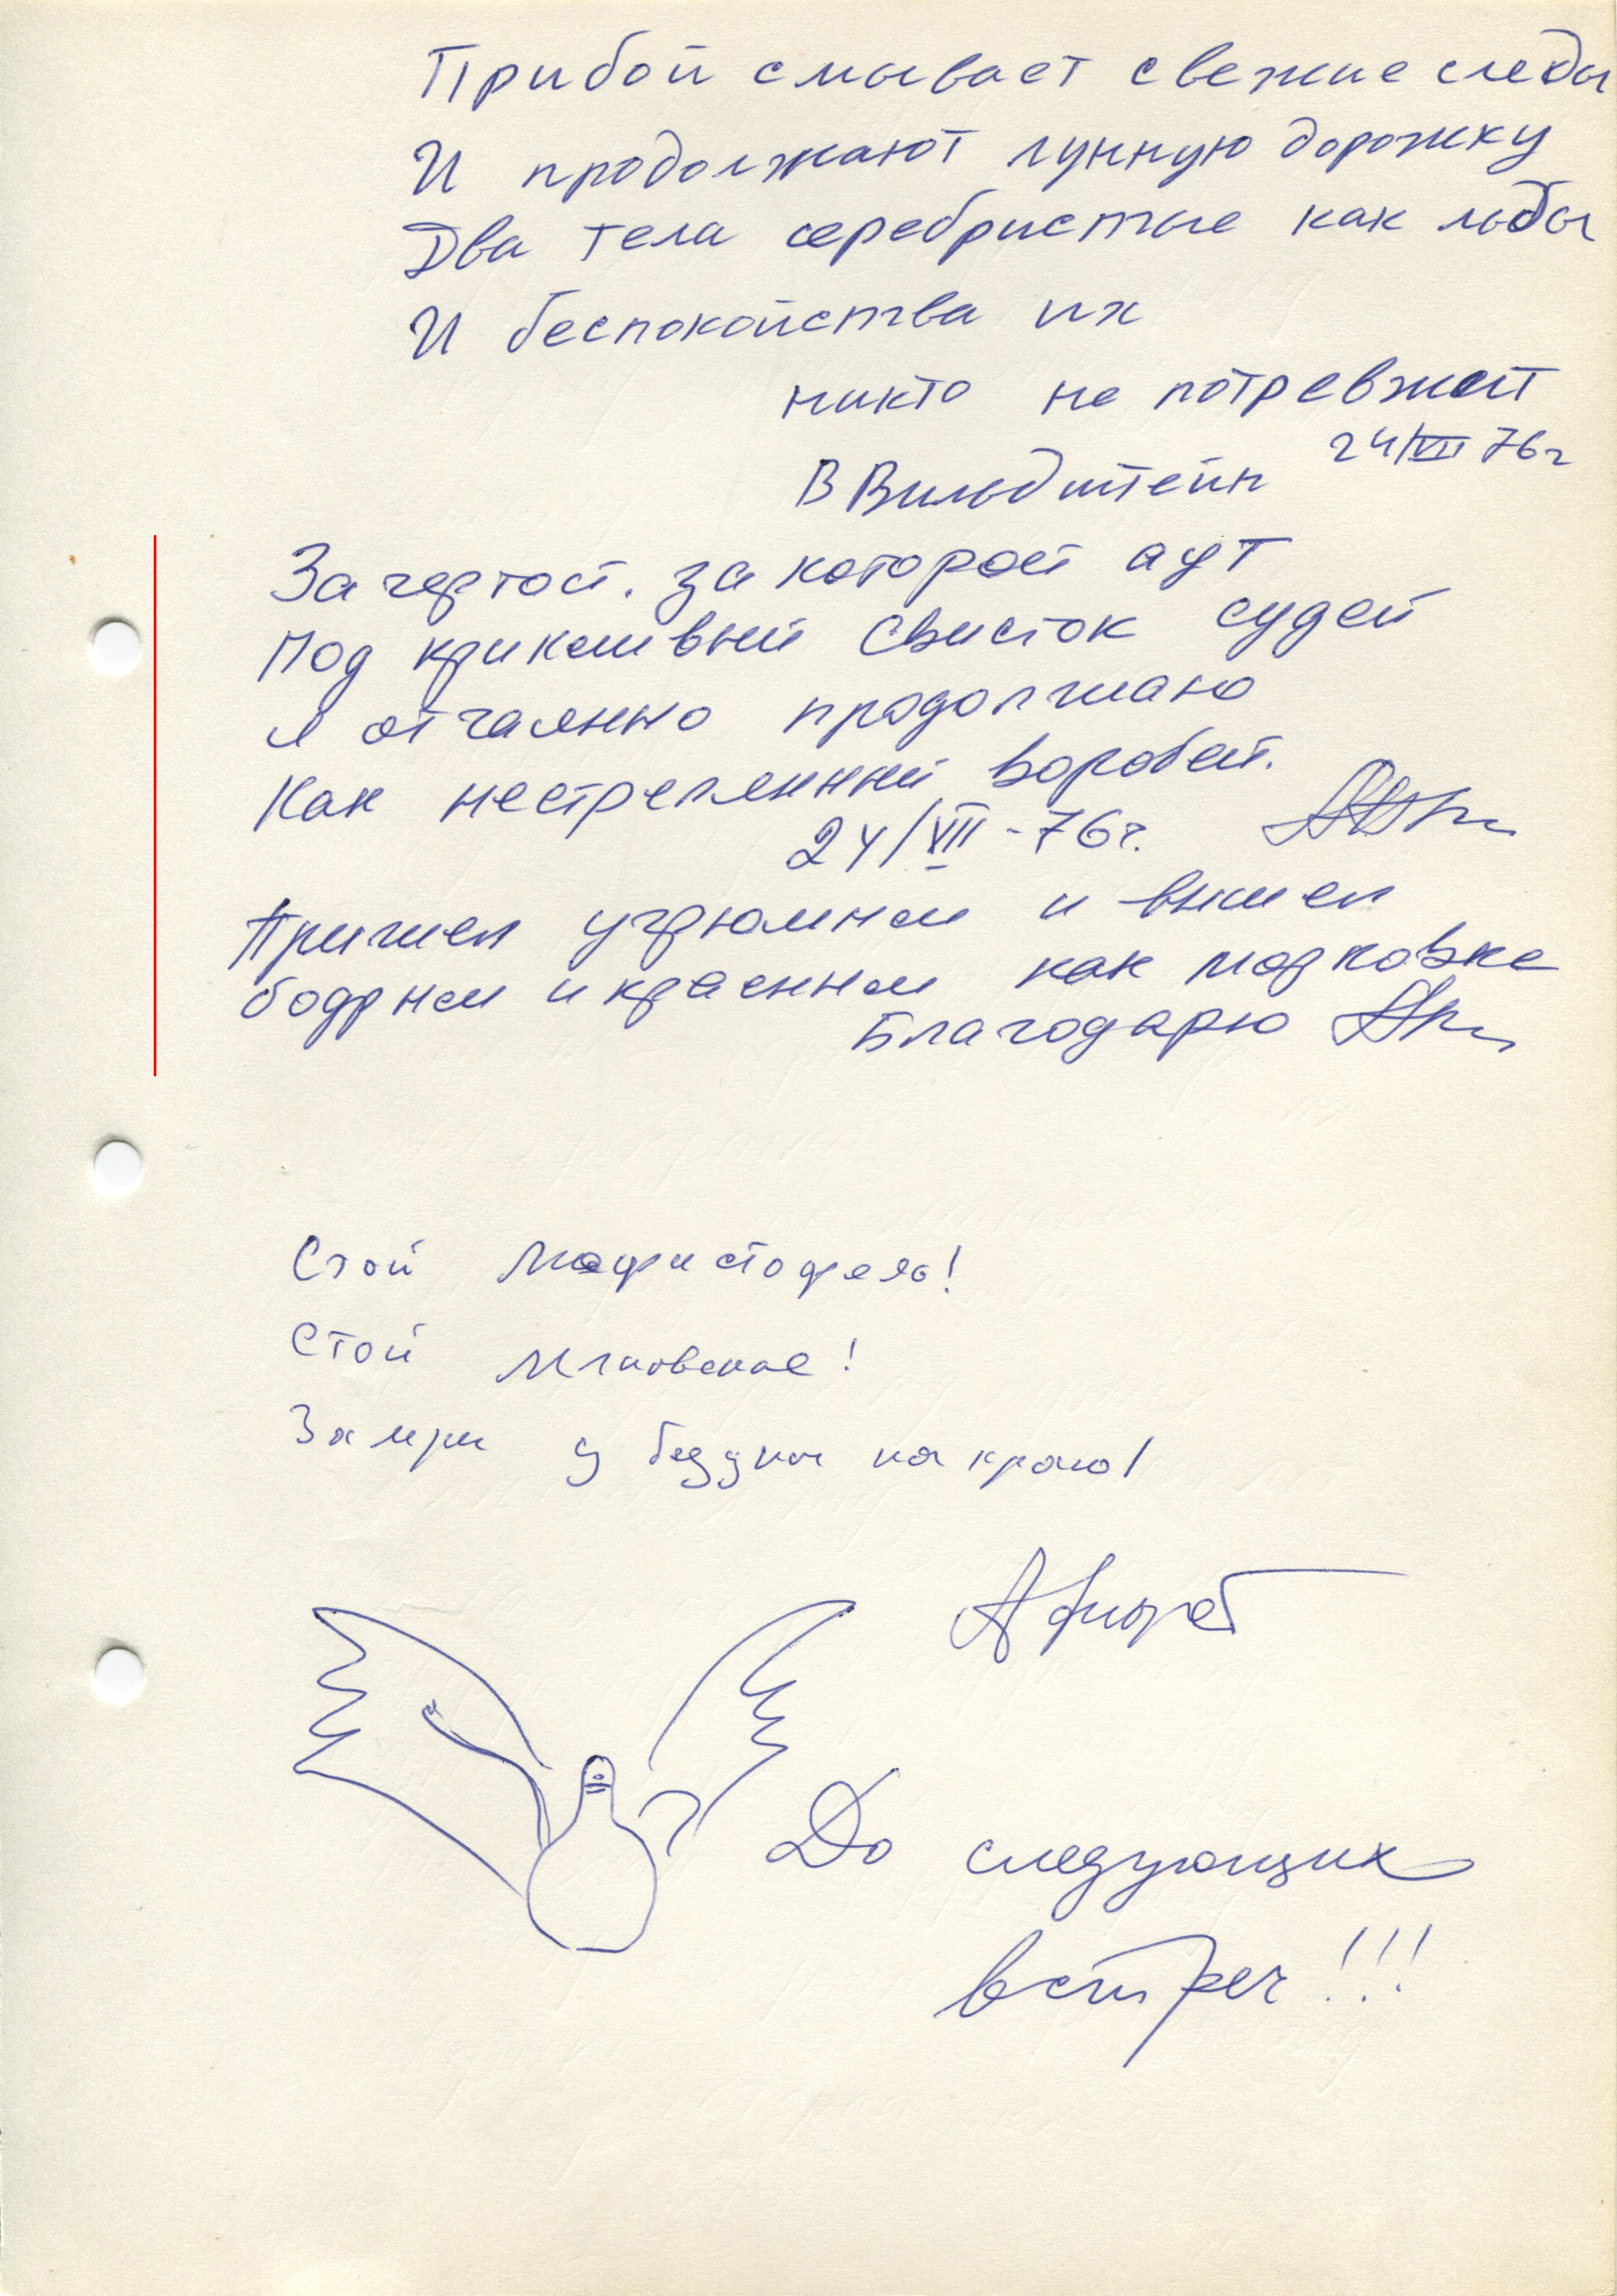 Прибой смывает свежие следы
И продолжают лунную дорожку
Два тела серебристые как льды
И беспокойства их
никто не потревжит
24/VII 76г
В Вильдштейн
За чертой. за которой аут
Под крикливый свисток судей
я отчаянно продолжаю
Как нестрелянный воробей.
24/VII - 76г.
Пришел угрюмым и вышел
бодрым и красным как морковка
Благодарю
Стой Мефистофель!
Стой Мгновение!
Замри у бездны на краю!
До следующих
встреч!!!